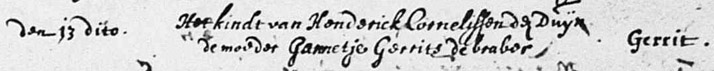 den 13 dito. Het kindt van Henderick Cornelissen de Duijn
de moeder Gannetje Gerrits de braber Gerrit.